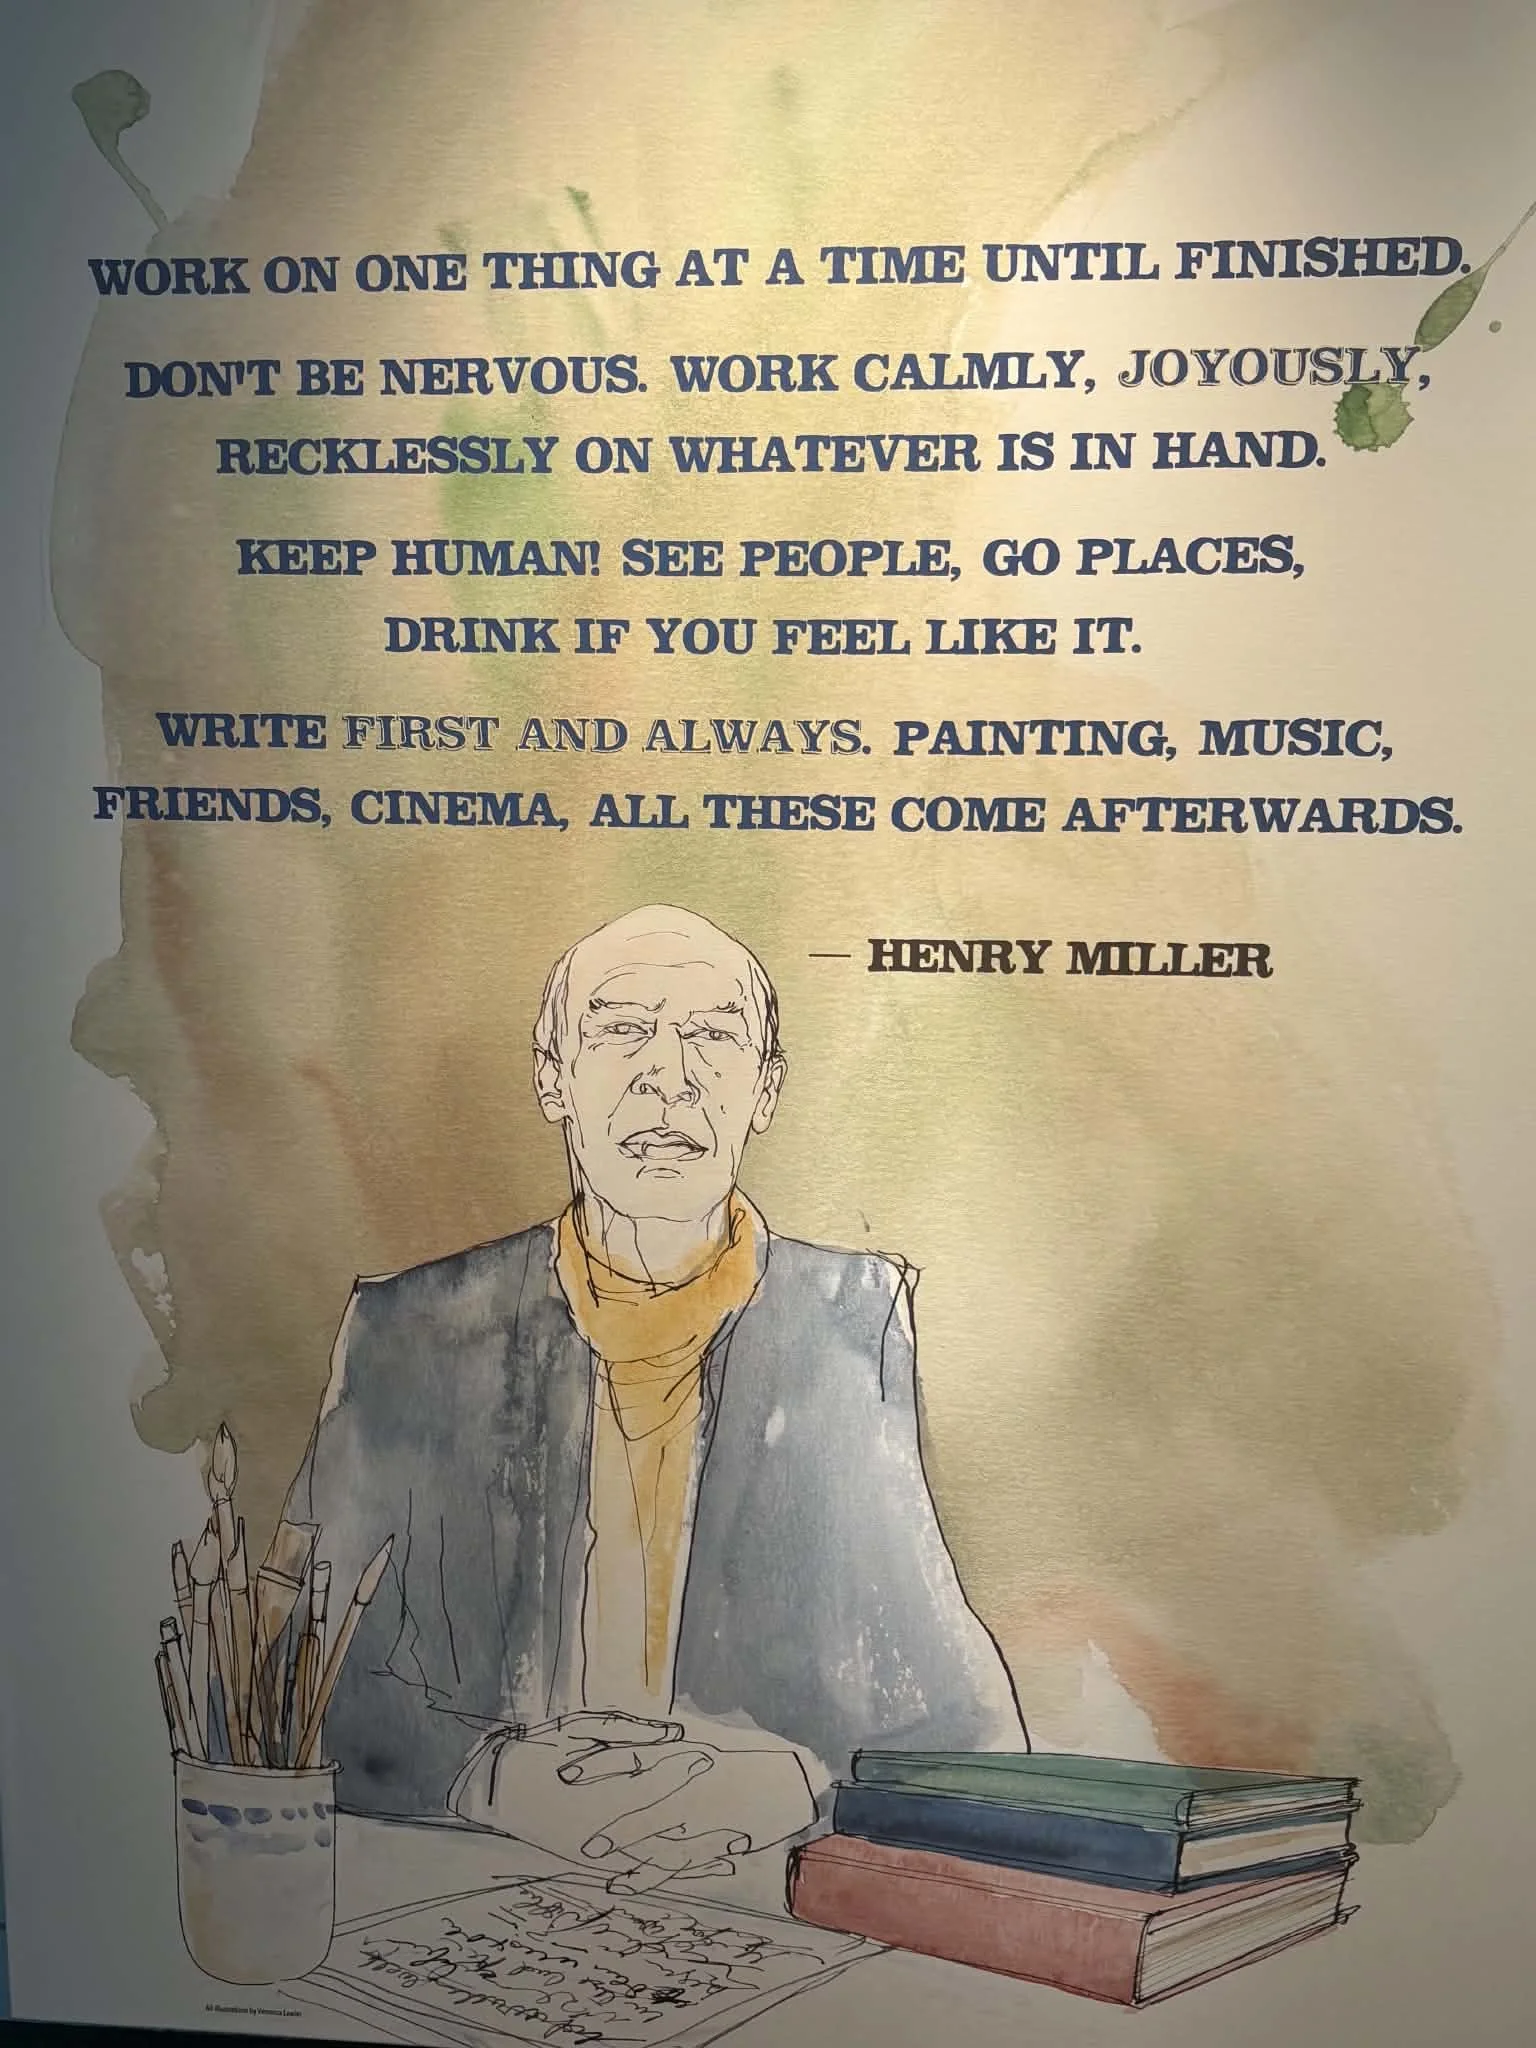 WORK ON ONE THING AT A TIME UNTIL FINISHED.
DON'T BE NERVOUS. WORK CALMLY, JOYOUSLY,
RECKLESSLY ON WHATEVER IS IN HAND.
KEEP HUMAN! SEE PEOPLE, GO PLACES,
DRINK IF YOU FEEL LIKE IT.
WRITE FIRST AND ALWAYS. PAINTING, MUSIC,
FRIENDS, CINEMA, ALL THESE COME AFTERWARDS.
— HENRY MILLER
All illustrations by Veronica Lawlor